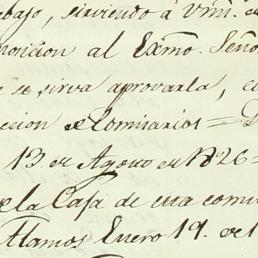 bajo, sirviendo á Vm.
posicion al Exmo. Seño
se sirva aprovarla,
eccion de Comisarios =
13 de Agosto de 1826 =
de la Casa de esa comi
Alamos Enero 19. de 1